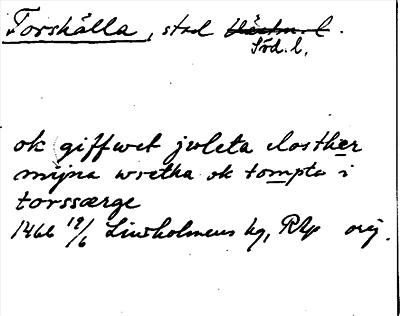 Torshälla, stad Västm. l.
Söd. l.
ok giffwet juleta closther
mijna wretha ok tompta i
torssærge
1466 19/6 Linsholmens hg, Rap orig.